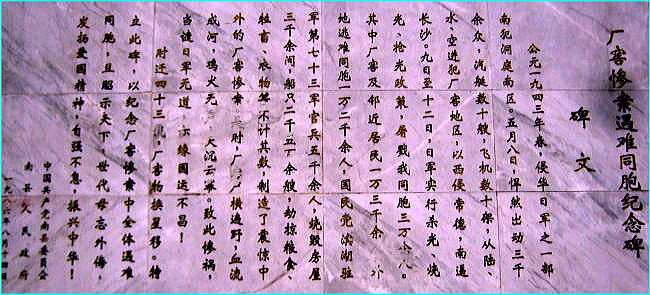 厂窖惨案遇难同胞纪念碑
碑文
公元一九四三年春，侵华日军之一部
南犯洞庭南区。五月八日，悍然出动三千
余众，汽艇数十艘，飞机数十架，从陆、
水、空进犯厂窖地区，以西侵常德，南逼
长沙。九日至十二日，日军实行杀光、烧
光、抢光政策，屠戮我同胞三万余人。
其中厂窖及邻近居民一万三千余人，外
地逃难同胞一万二千余人，国民党滨湖驻
军第七十三军官兵五千余人，烧毁房屋
三千余间，船只一千五百余艘，劫掠粮食、
牲畜、衣物等不计其数，制造了震惊中
外的厂窖惨案。时，厂窖尸横遍野，血流
成河，鸡犬无，天沉云寒。致此惨祸，
当诿日军无道，亦缘国运不昌！
时迁四十三载，厂窖物换星移。特
立此碑，以纪念厂窖惨案中全体遇难
同胞，且昭示天下，世代毋忘外侮，
发扬爱国精神，自强不息，振兴中华！
中国共产党南县委员会
南县人民政府
一九八六年八月十四日